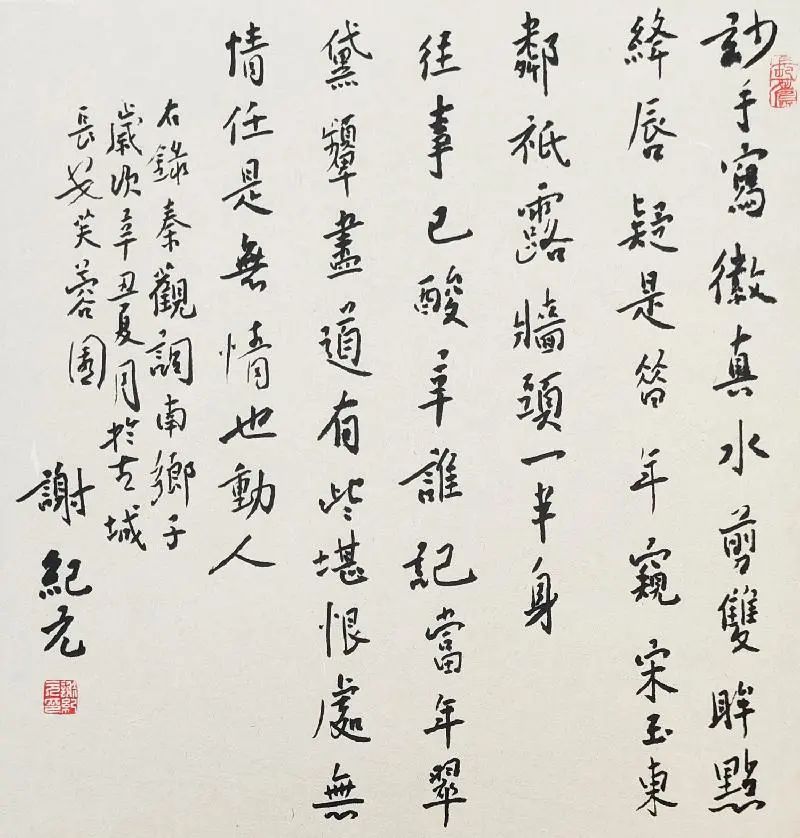 玅手寫徽真水剪雙眸點
絳唇疑是昔年窺宋玉東
鄰祇露牆頭一半身
往事已酸辛誰記當年翠
黛顰盡道有些堪恨處無
情任是無情也動人
右錄秦觀詞南鄉子
歲次辛丑夏月於古城
長安芙蓉園
謝紀元